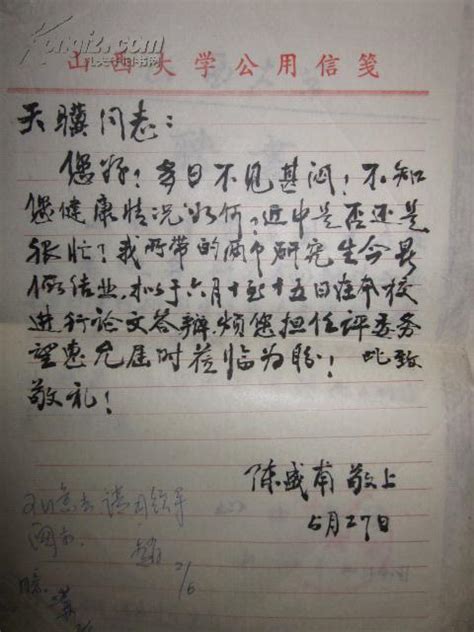 Kongfz.com
孔夫子旧书网
山西大学公用信笺
天骥同志:
您好!多日不见甚闷!不知
您健康情况如何?近中是否还是
很忙?我所带的两个研究生今暑
假结业,拟于六月十至十五日在本校
进行论文答辩,烦您担任评委务
望惠允届时莅临为盼!此致
敬礼!
陈盛甫敬上
5月27日
2/6